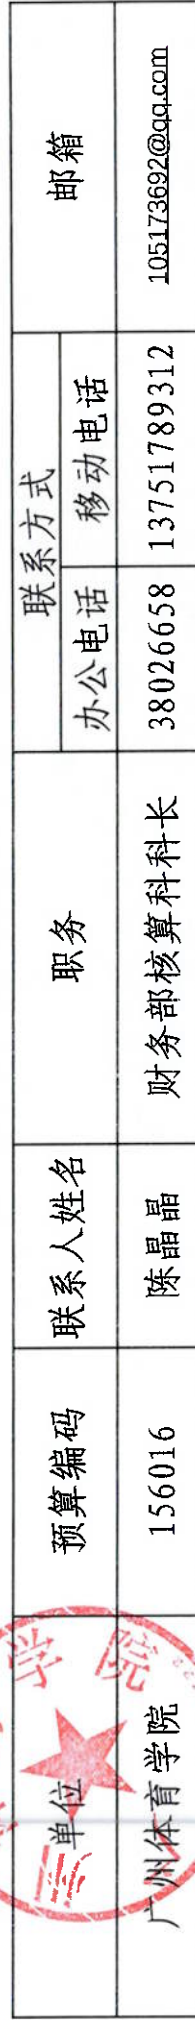 单位 预算编码 联系人姓名 职务 联系方式 邮箱
办公电话 移动电话
广州体育学院 156016 陈晶晶 财务部核算科科长 38026658 13751789312 105173692@qq.com
学院